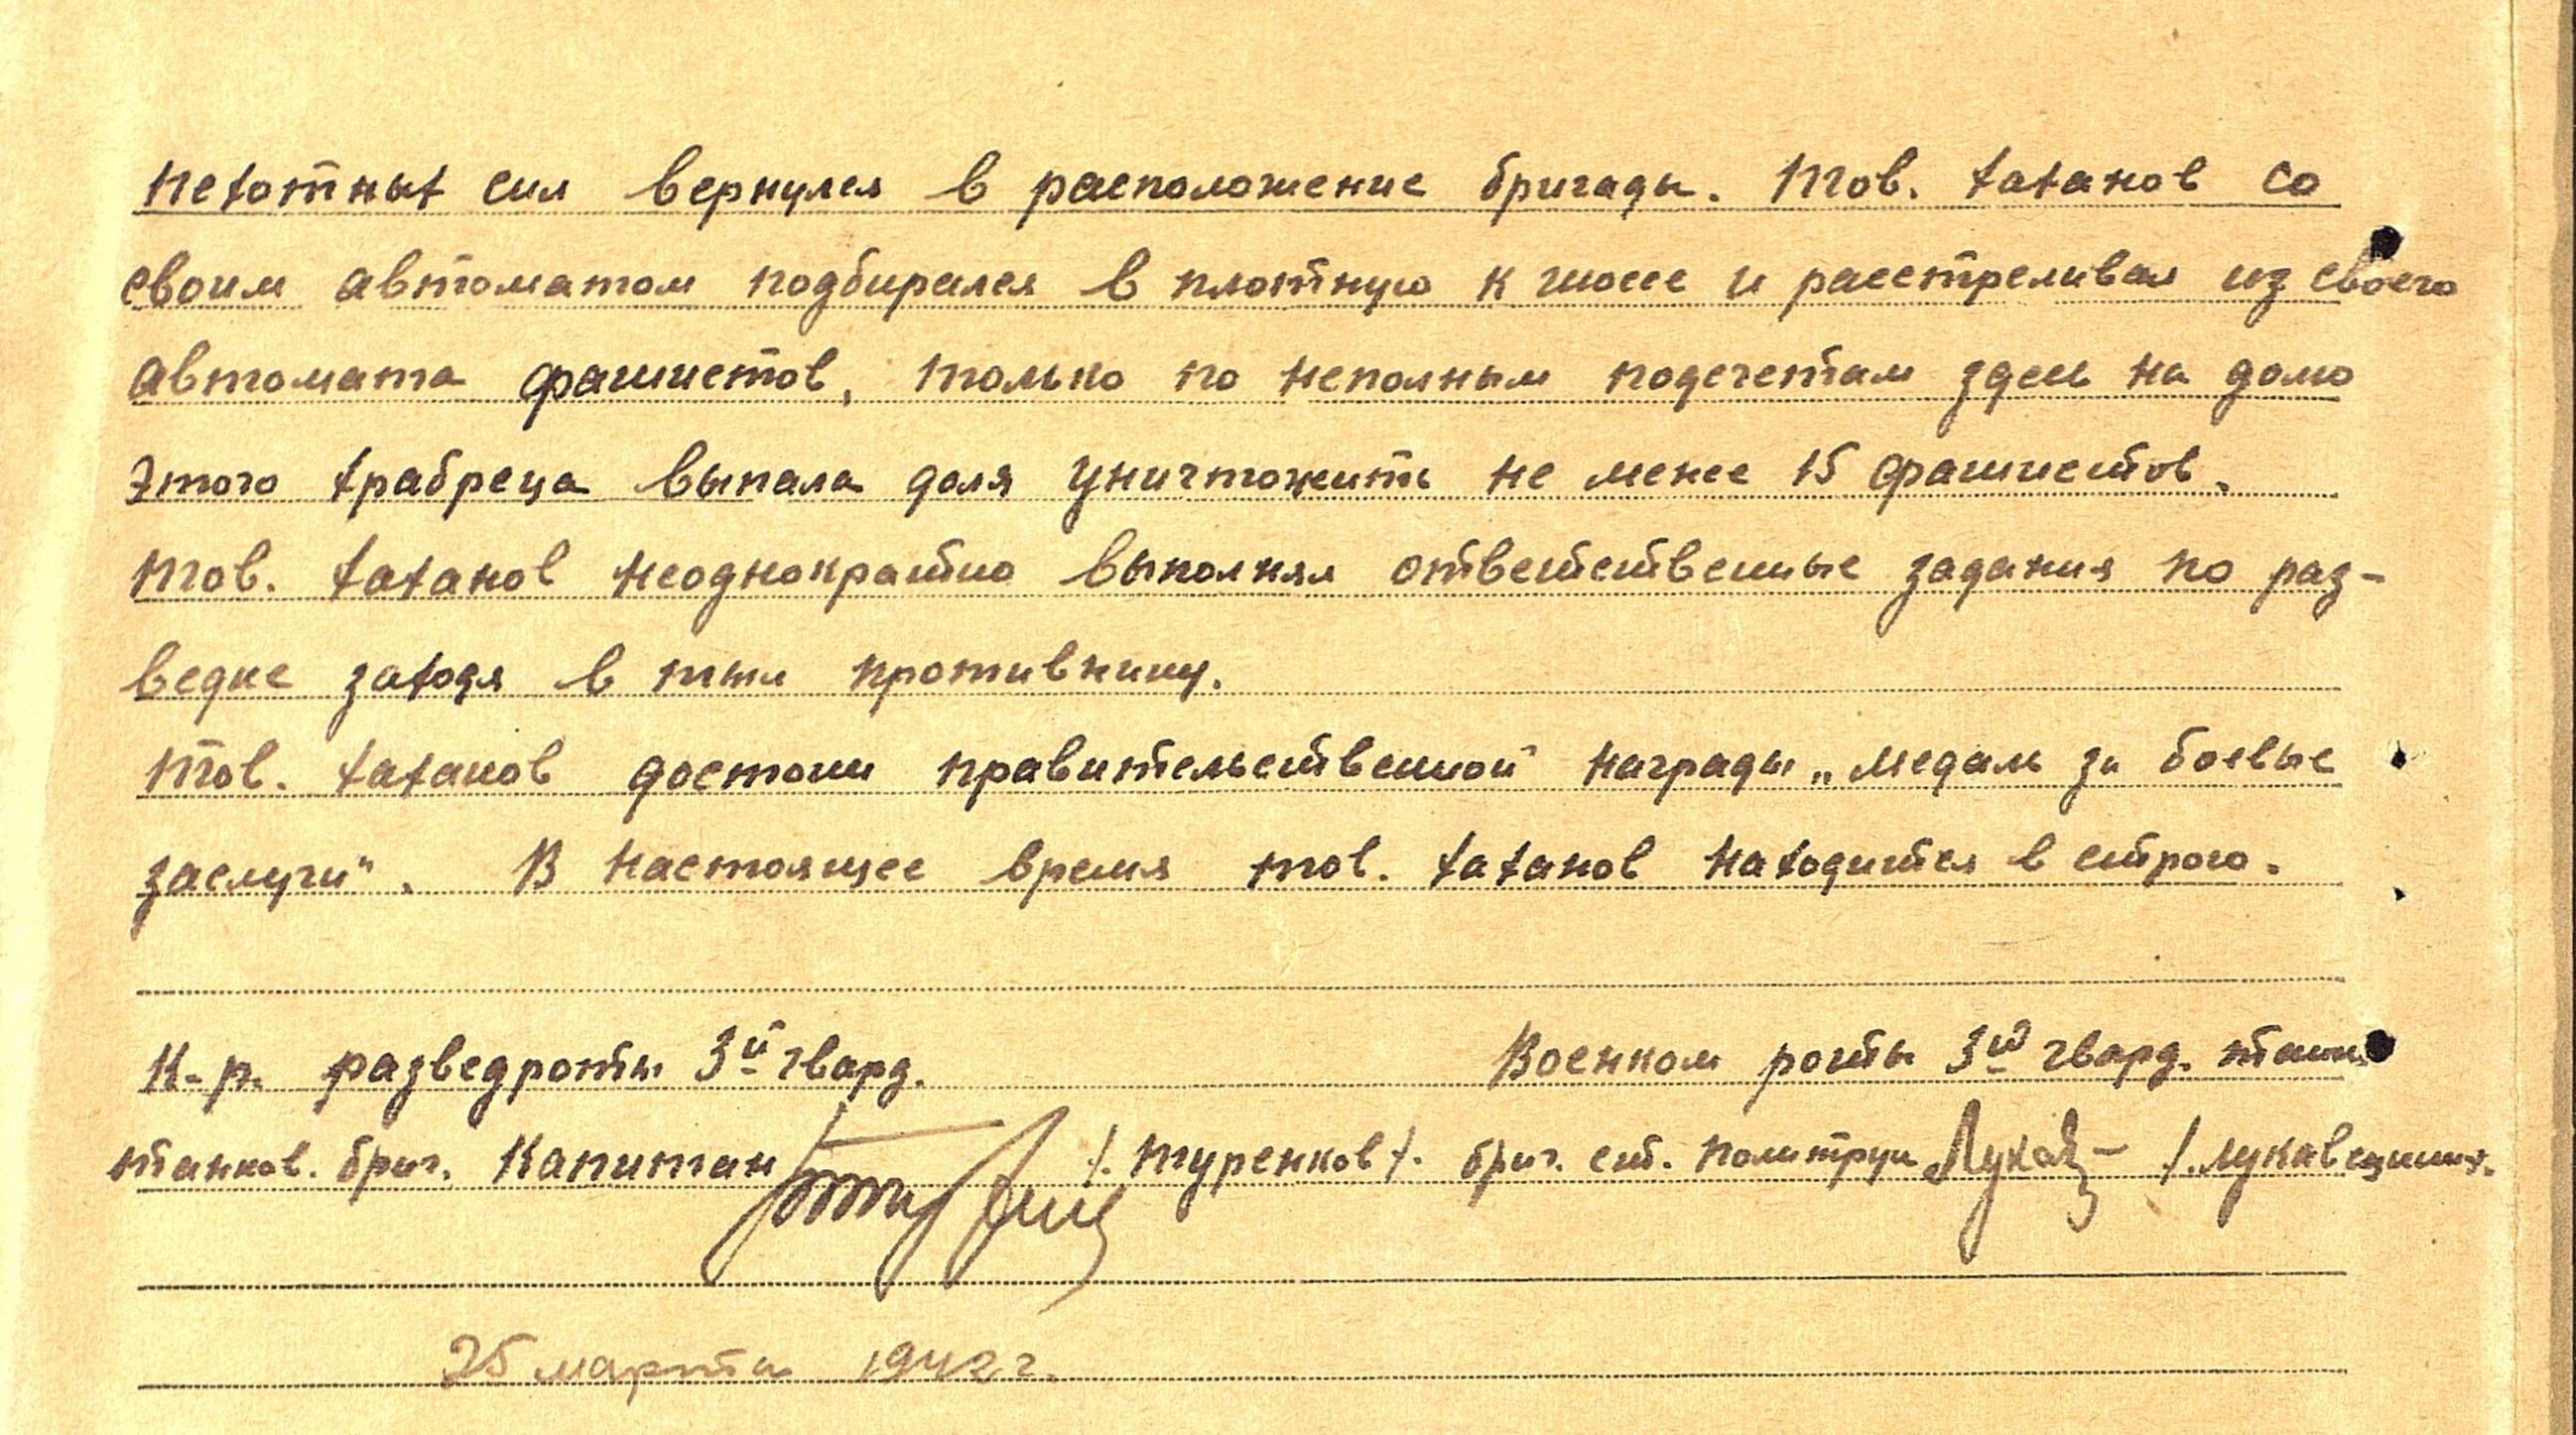 пехотных сил вернулся в расположение бригады. Тов. Хаханов со
своим автоматом подбирался в плотную к шоссе и расстреливал из своего
автомата фашистов, только по неполным подсчетам здесь на долю
этого храбреца выпала доля уничтожить не менее 15 фашистов.
Тов. Хаханов неоднократно выполнял ответственные задания по раз-
ведке заходя в тыл противнику.
Тов. Хаханов достоин правительственной награды „медаль за боевые
заслуги". В настоящее время тов. Хаханов находится в строю.
К-р. разведроты 3й гвард.
танков. бриг. Капитан /. Туренков /.
Военком роты 3й гвард. танк
бриг. ст. политрук /. Лукавецкий /.
25 марта 1942 г.